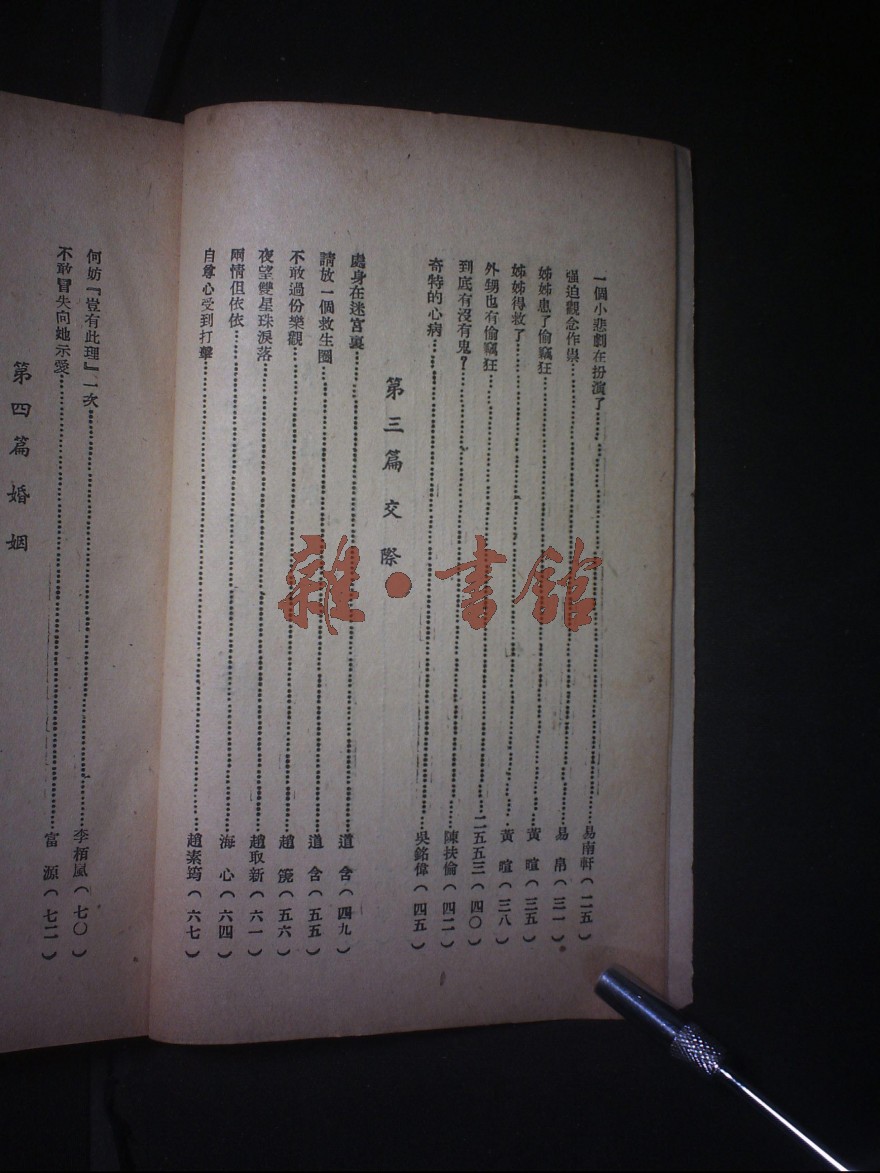 一個小悲劇在扮演了……易南軒(二五)
强迫觀念作祟……易帛(三一)
姊姊患了偷竊狂……黃喧(三五)
姊姊得救了……黃喧(三八)
外甥也有偷竊狂……二五五三(四〇)
到底有沒有鬼?……陳扶倫(四二)
奇特的心病……吳銘偉(四五)
第三篇 交際
處身在迷宮裏……道含(四九)
請放一個救生圈……道含(五五)
不敢過份樂觀……趙箎(五六)
夜望雙星珠淚落……趙取新(六一)
兩情但依依……海心(六四)
自尊心受到打擊……趙素筠(六七)
何妨『豈有此理』一次……李栢嵐(七〇)
不敢冒失向她示愛……富源(七二)
第四篇 婚姻
雜·書館